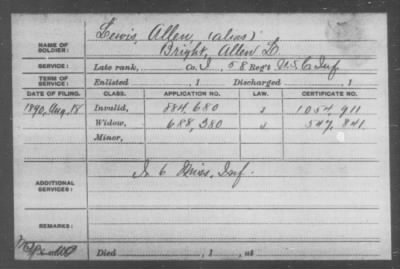 Lewis, Allen, (alias)
NAME OF SOLDIER: Bright, Allen L
SERVICE: Late rank, Co. I, 58 Regt U.S.C. Inf
TERM OF SERVICE: Enlisted , 1 Discharged , 1
DATE OF FILING. CLASS. APPLICATION NO. LAW. CERTIFICATE NO.
1890, Aug. 18 Invalid, 884,680 1054,911
Widow, 688,380 547,841
Minor,
ADDITIONAL SERVICES: 6 Miss. Inf.
REMARKS:
Died , 1 , at